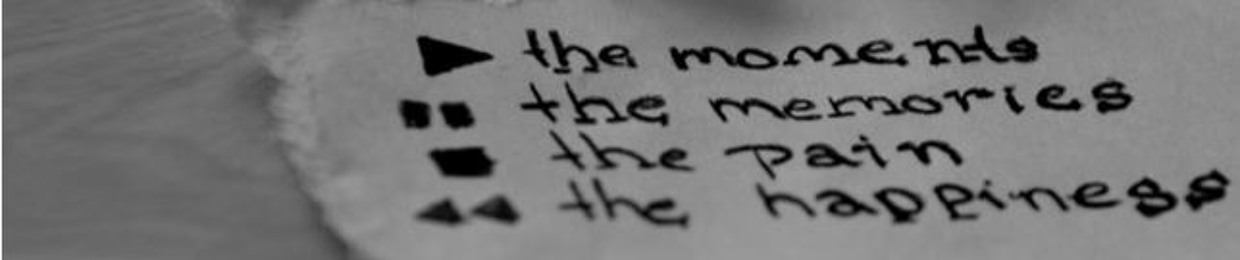 the moments
the memories
the pain
the happiness